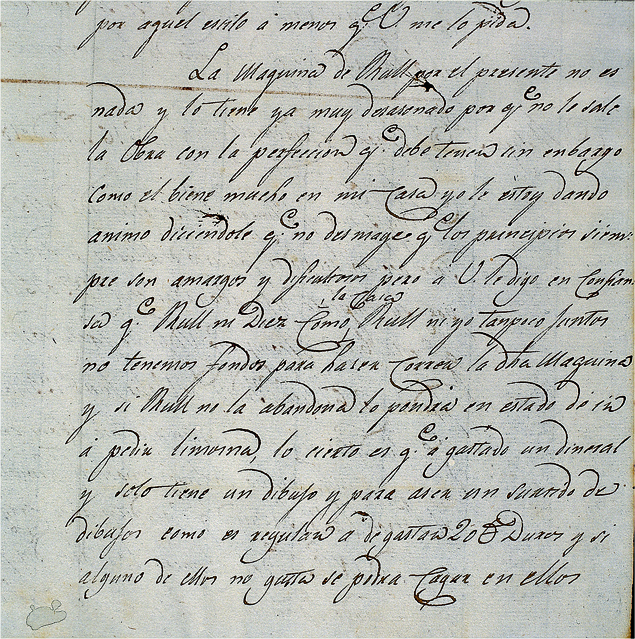 por aquel estilo á menos q.e V. me lo pida.
La Maquina de Rull por el presente no es
nada y lo tiene ya muy desasonado por q.e no le sale
la Obra con la perfeccion q.e debe tener sin embargo
como el biene mucho en mi Casa yo le estoy dando
animo diciendole q.e no desmaye q.e los principios siem-
pre son amargos y dificultosos pero a V. le digo en Confian
sa q.e Rull ni Diez Como Rull ni yo tanpoco Juntos
la Casa
no tenemos fondos para haser Correr la dha Maquina
y si Rull no la abandona lo pondra en estado de ir
á pedir limosna, lo cierto es q.e á gastado un dineral
y solo tiene un dibujo y para aser un surtido de
dibujos como es regular a de gastar 20 Duros y si
alguno de ellos no gusta se podra Cagar en ellos